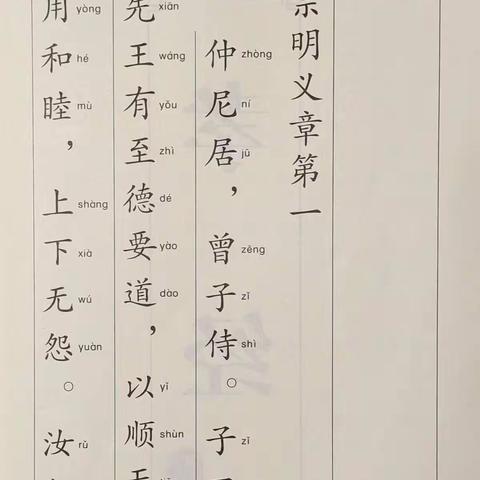 宗明义章第一
仲尼居，曾子侍。子
zhòng ní jū zēng zǐ shì zǐ
先王有至德要道，以顺天
xiān wáng yǒu zhì dé yào dào yǐ shùn
用和睦，上下无怨。汝
yòng hé mù shàng xià wú yuàn rǔ